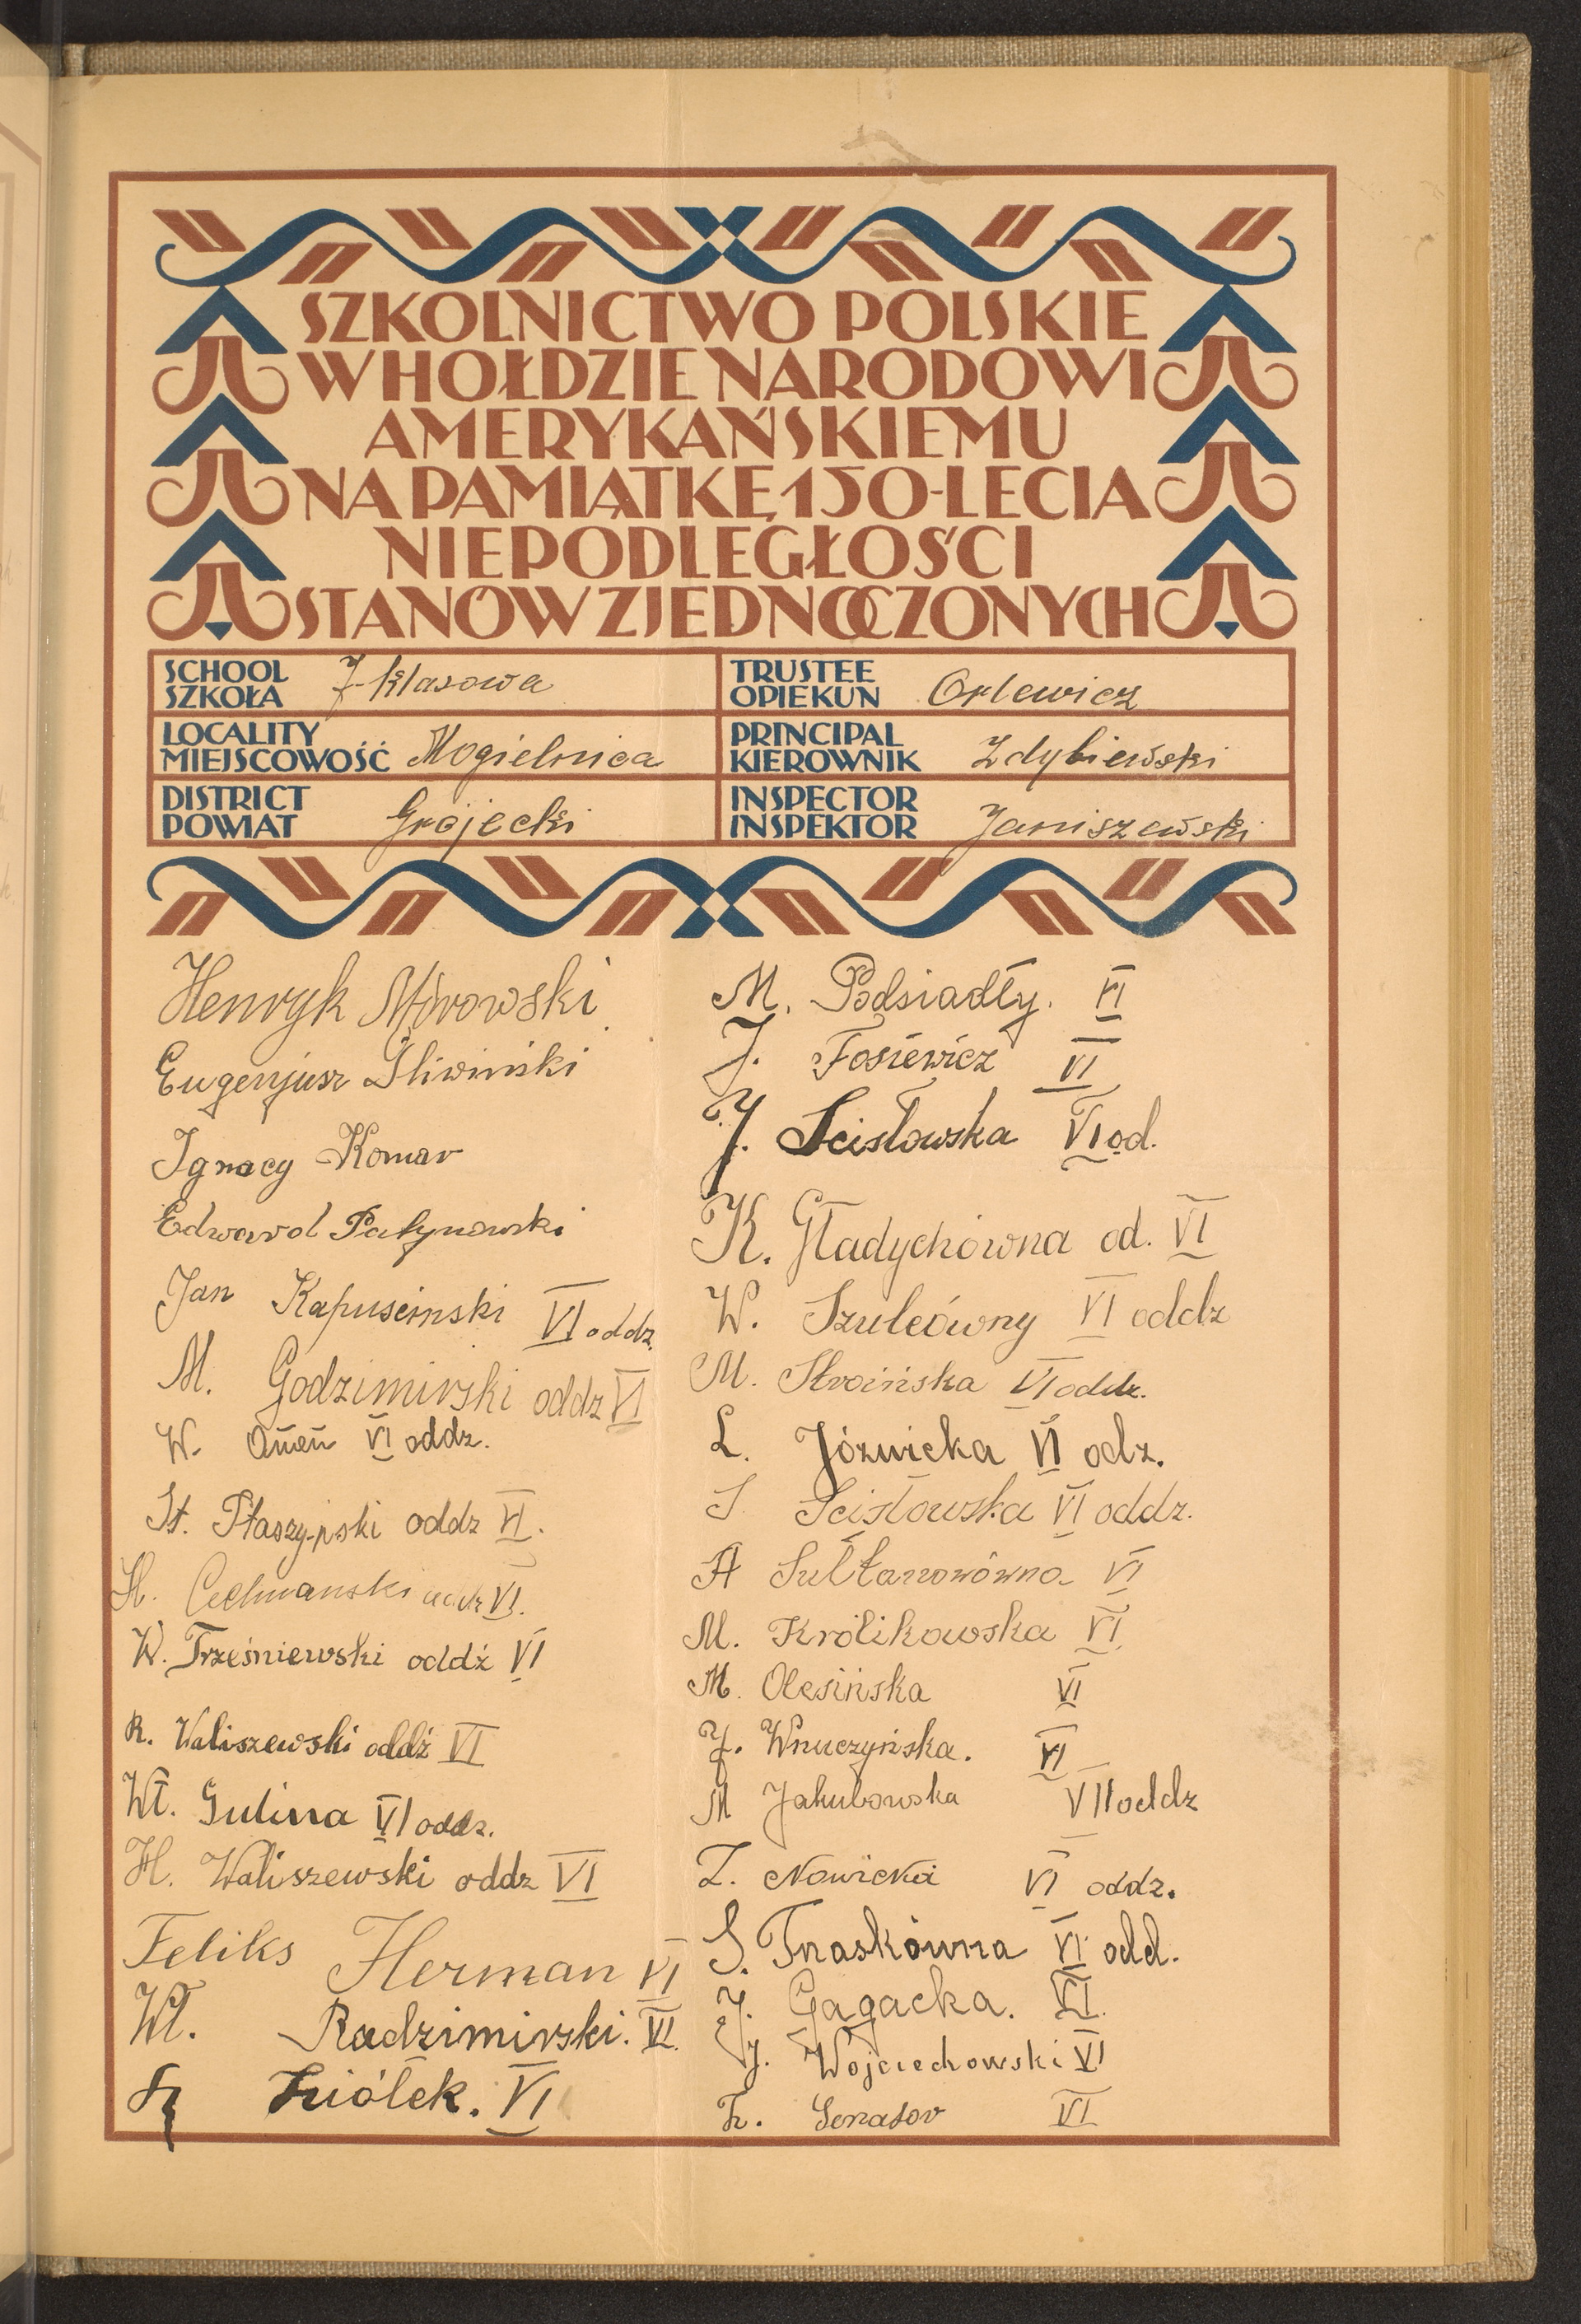 SZKOLNICTWO POLSKIE
W HOŁDZIE NARODOWI
AMERYKAŃSKIEMU
NA PAMIĄTKĘ 150-LECIA
NIEPODLEGŁOŚCI
STANÓW ZJEDNOCZONYCH
SCHOOL
SZKOŁA 7-klasowa
LOCALITY
MIEJSCOWOŚĆ Mogielnica
DISTRICT
POWIAT Grójecki
TRUSTEE
OPIEKUN Orlewicz
PRINCIPAL
KIEROWNIK Zdybiewski
INSPECTOR
INSPEKTOR Janiszewski
Henryk Mórowski
Eugenjusz Śliwiński
Ignacy Komar
Edward Patynowski
Jan Kapuscinski VI oddz.
M. Godzimirski oddz VI
W. VI oddz.
St. Ptaszyński oddz VI.
Cechmanski VI.
W. Trześniewski oddź VI
R. Waliszewski oddź VI
Wł. Gulina VI oddz.
H. Waliszewski oddz VI
Feliks Herman VI
Wł. Radzimirski. VI.
Ziółek. VI
M. Podsiadły. VI
J. Fosiewicz VI
J. Scisłowska VI od.
K. Gładychówna od. VI
W. Szulcówny VI oddz
M. Stroińska VI oddz.
L. Józwicka VI odz.
S. Scisłowska VI oddz.
A Sułtanowówna VI
M. Królikowska VI
M. Olesińska VI
J. Wnuczyńska. VI
M Jakubowska VII oddz
Z. Nowicka VI oddz.
S. Traskówna VI odd.
J. Gągacka. VI.
J. Wojciechowski VI
Z. Senator VI